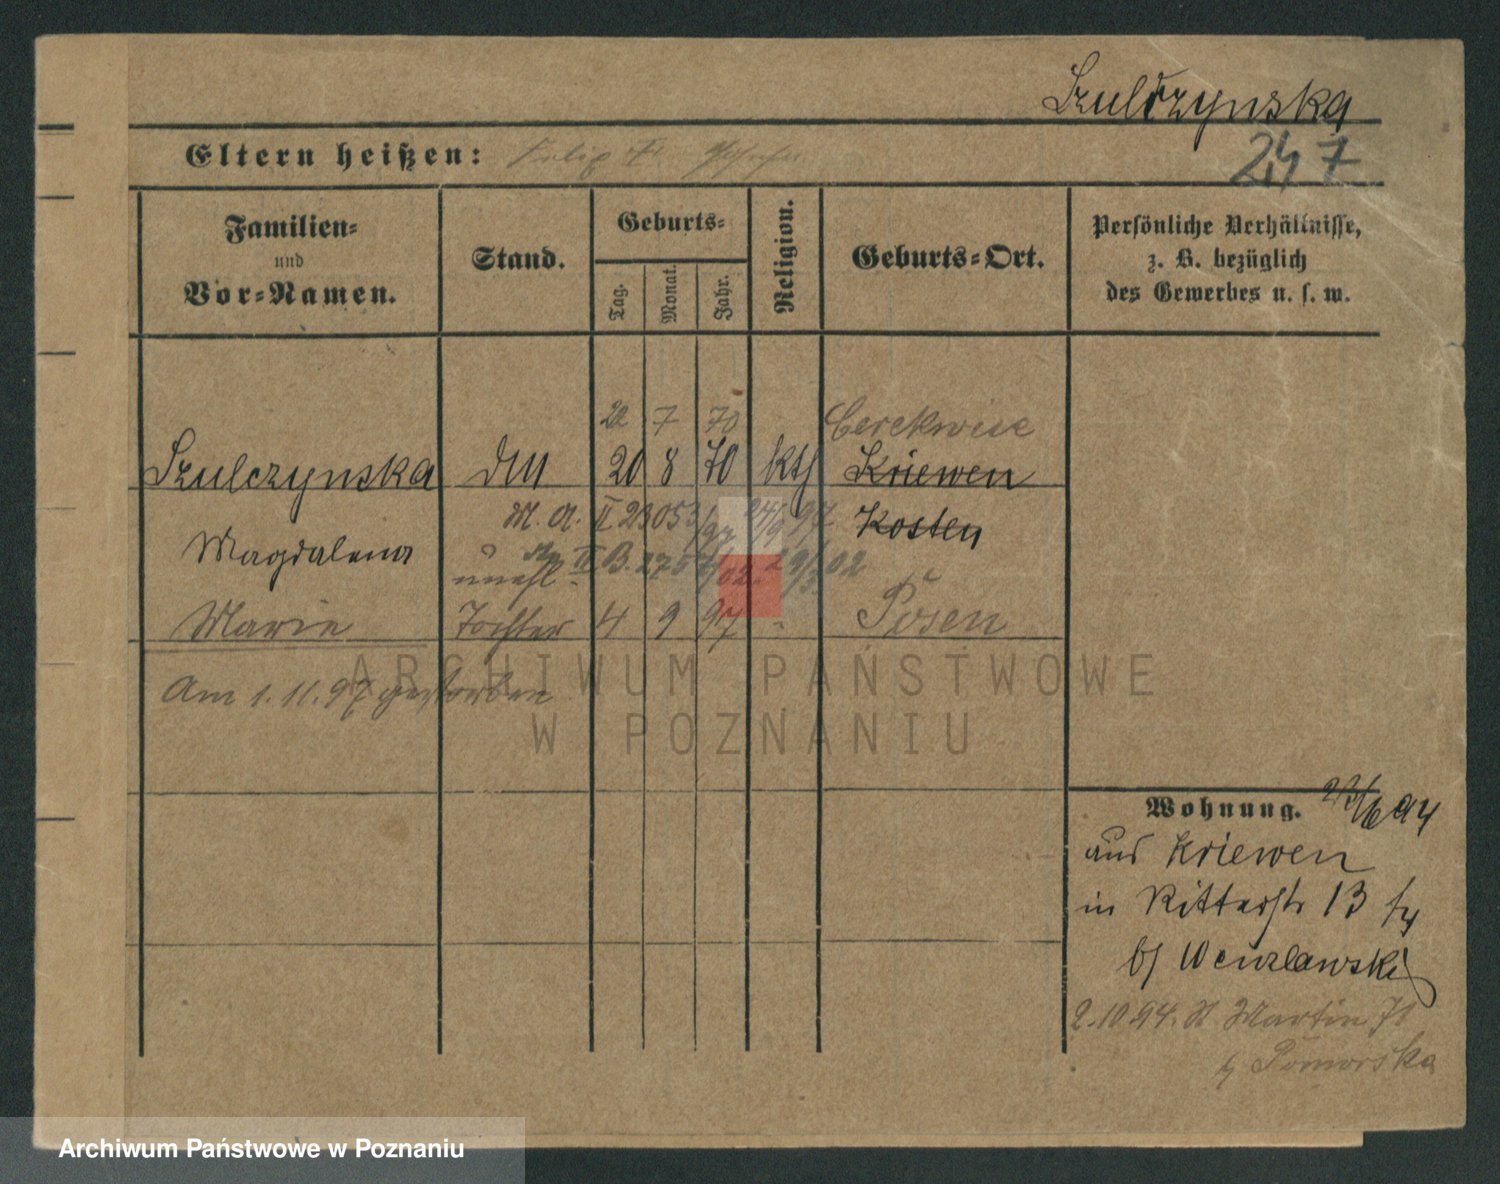 Szulczynska
247
Eltern heißen:
Familien- und Vor-Namen.
Stand.
Geburts-
Tag.
Monat.
Jahr.
Religion.
Geburts-Ort.
Persönliche Verhältnisse,
z. B. bezüglich
des Gewerbes u. s. w.
20 7 70 Cerekwice
Szulczynska 20 8 70 kth Kriewen
M. A. II 23053/97 24/9 97 Kosten
Magdalena
unehl.
Marie Tochter 4 9 97 " Posen
Am 1.11.97 gestorben
ARCHIWUM PAŃSTWOWE
W POZNANIU
Wohnung. 23/6 94
aus Kriewen
in Ritterstr 13
b/ Wenzlawski
2.10.94. St Martin 71
Pomorska
Archiwum Państwowe w Poznaniu